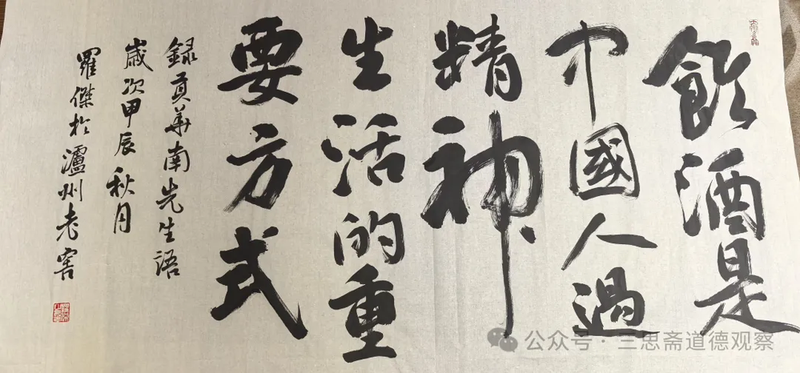 飲酒是
中國人過
精神
生活的重
要方式
録貢華南先生語
歲次甲辰秋月
羅傑於瀘州老窖
公众号·三思斋道德观察